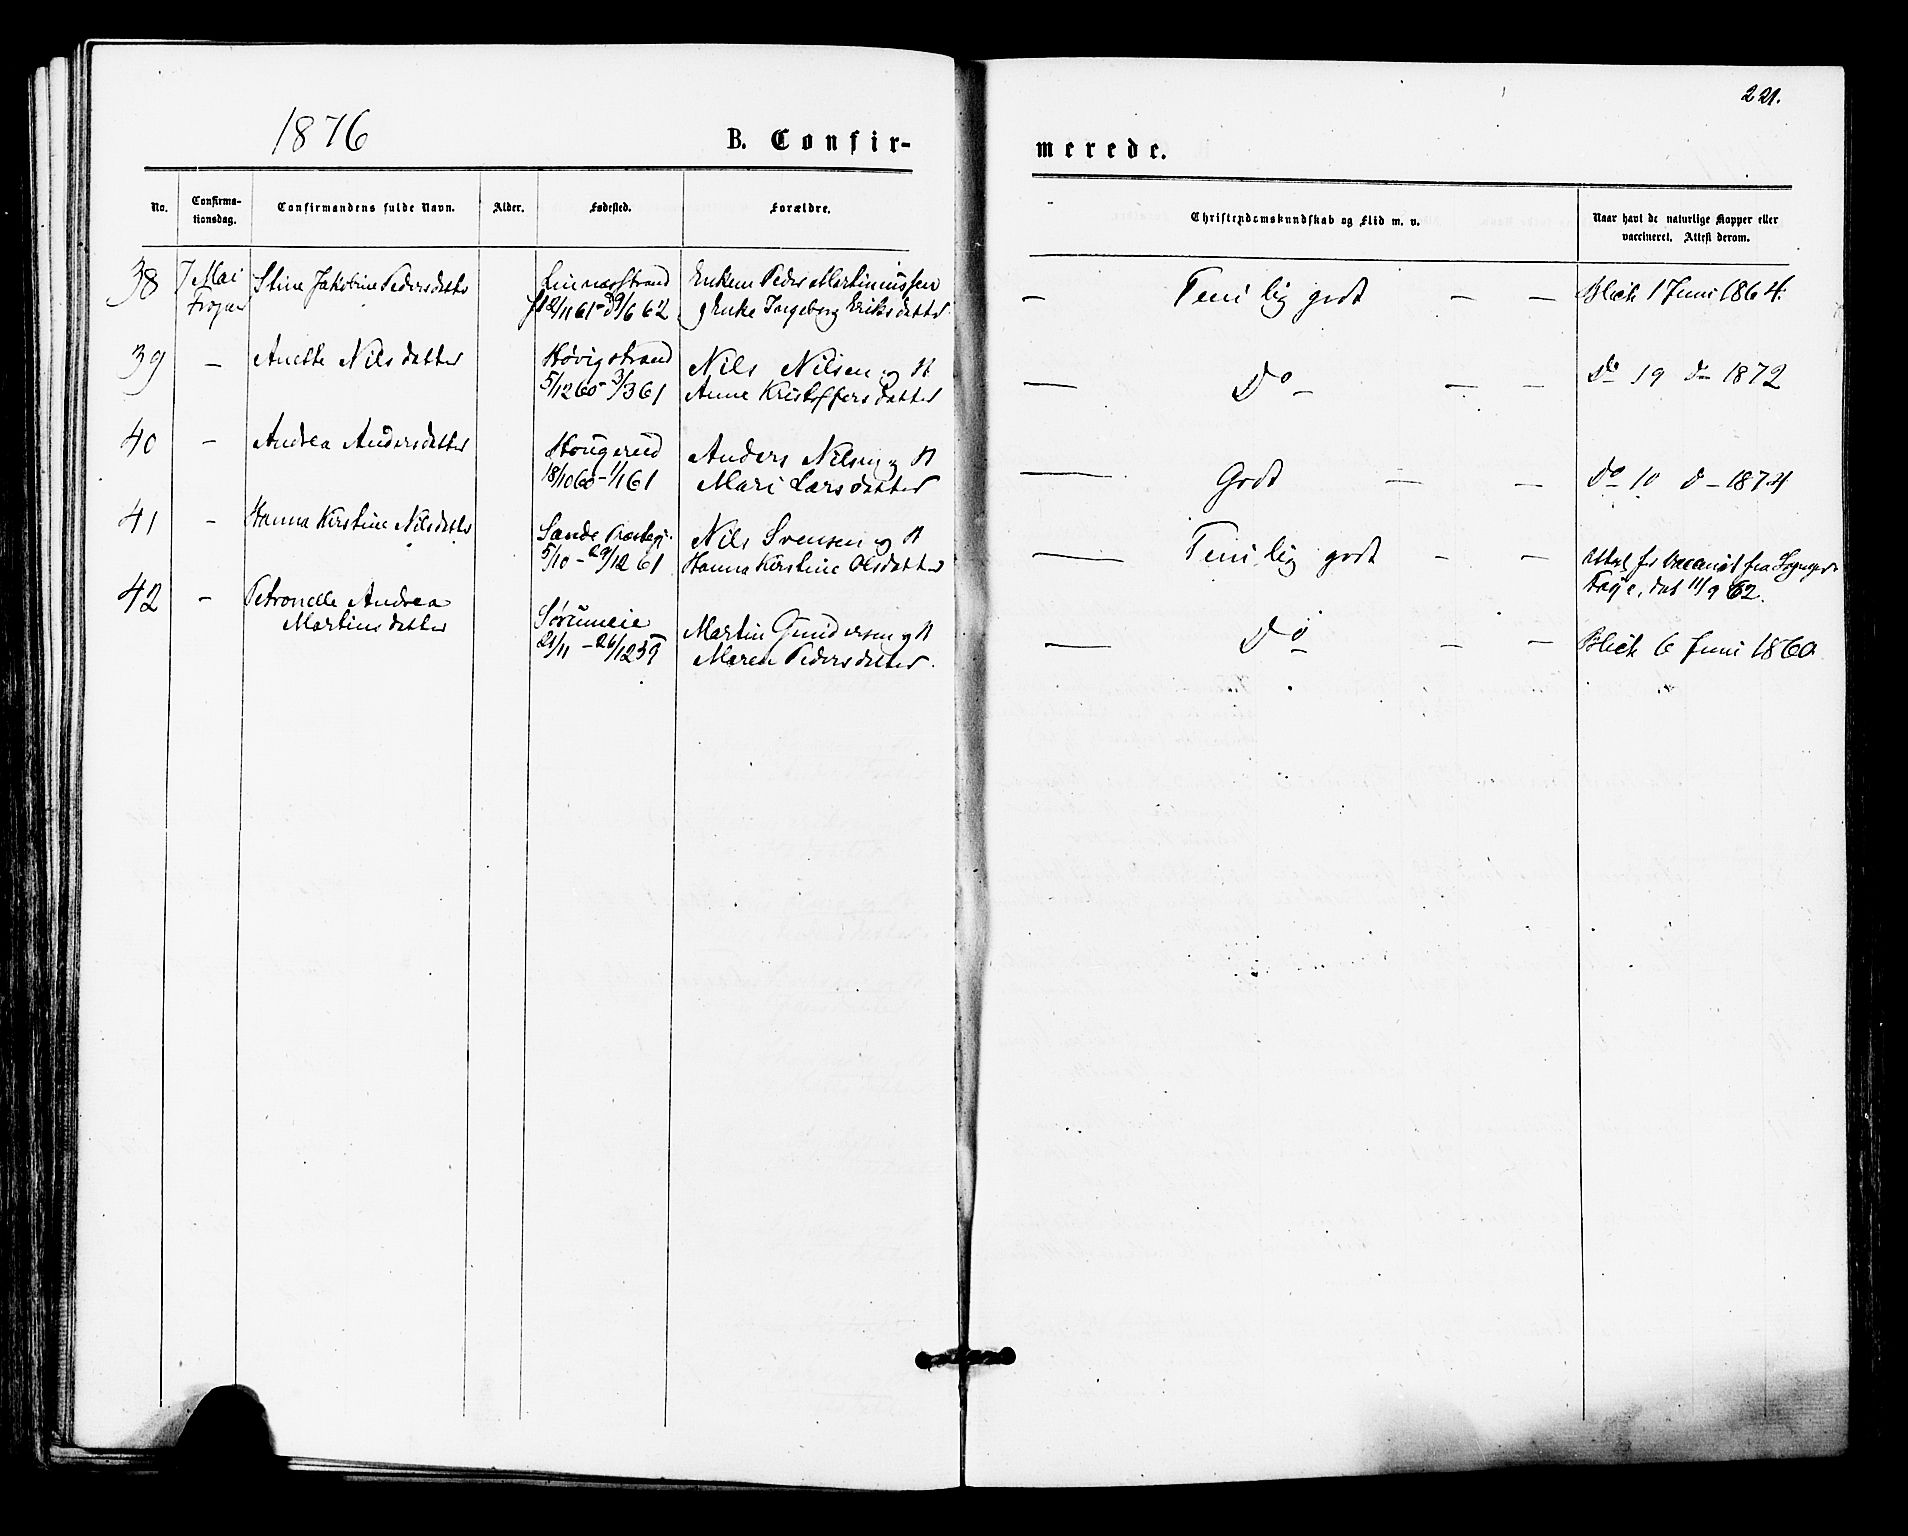 221.
1876
B. Confir-
merede.
No.
Confirma-
tionsdag.
Confirmandens fulde Navn.
Alder.
Fødested.
Forældre.
Christendomskundskab og Flid m. v.
Naar havt de naturlige Kopper eller
vaccineret. Attest derom.
38 7 Mai Stine Jakobine Pedersdatter Linnæsstrand Enkem Peder Martiniussen
12/11 61 - 9/6 62 Enke Ingeborg Eriksdatter
— Temlig godt — — Blich 1 Juni 1864.
39 - Anette Nilsdatter Høvigstrand Nils Nilsen og H
5/12 60 - 3/3 61 Anne Kristoffersdatter
— Do — — — Do 19 d— 1872
40 - Andrea Andersdatter Hougerud Anders Nilsen og H
18/10 60 - 1/1 61 Mari Larsdatter
— Godt — — Do 10 d— 1874
41 - Hanna Kirstine Nilsdatter Sande Præstegj. Nils Svensen og H
5/10 - 29/12 61 Hanna Kirstine Olsdatter
— Temlig godt — — Attest for vaccinat fra
dat 11/9 62.
42 - Petronelle Andrea
Martinsdatter Sørumeie Martin Gundersen og H
21/11 - 26/12 59 Maren Pedersdatter.
— Do — — Blich 6 Juni 1860